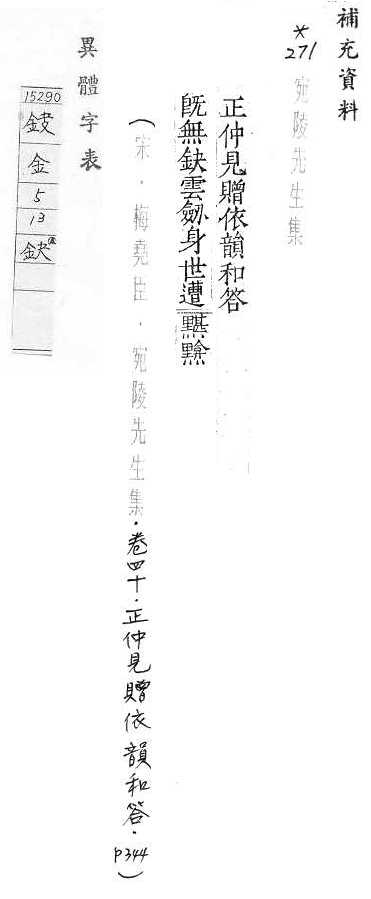 補充資料
*271
宛陵先生集
正仲見贈依韻和答
旣無鈌雲劒身世遭黮
（宋．梅堯臣．宛陵先生集．卷四十．正仲見贈依韻和答．p344）
異體字表
15290
金
5
13
鈌